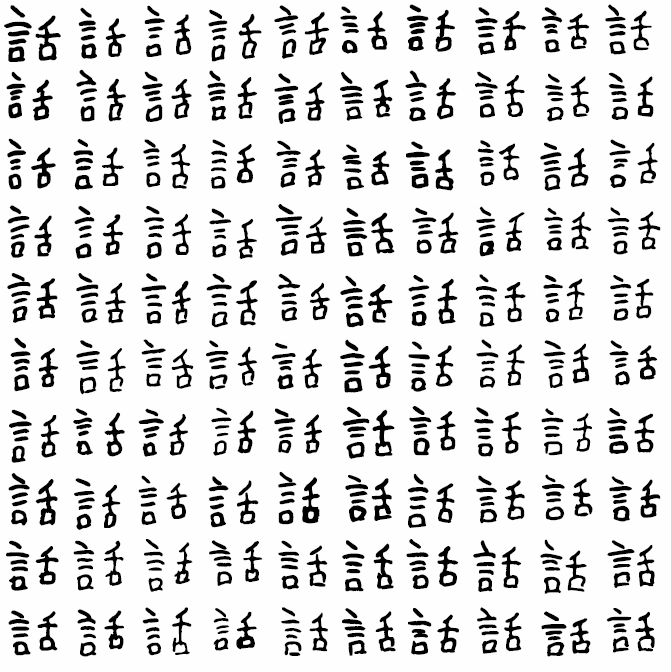 話話話話話話話話話話
話話話話話話話話話話
話話話話話話話話話話
話話話話話話話話話話
話話話話話話話話話話
話話話話話話話話話話
話話話話話話話話話話
話話話話話話話話話話
話話話話話話話話話話
話話話話話話話話話話